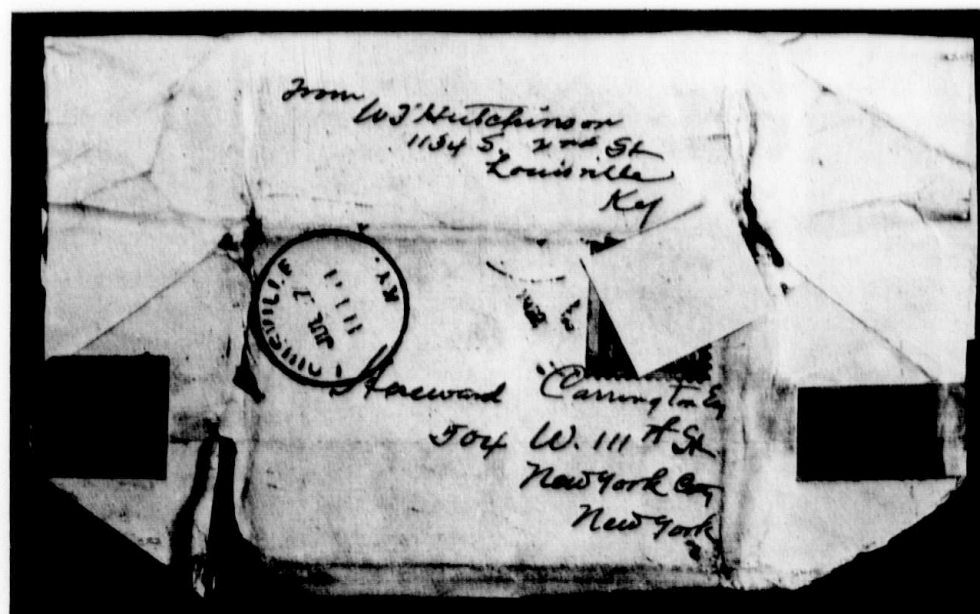 From
WJ Hutchinson
1134 S. 2nd St
Louisville
Ky
LOUISVILLE KY.
JUL 7
11
Hereward Carrington Esq
504 W. 111th St
New York City
New York